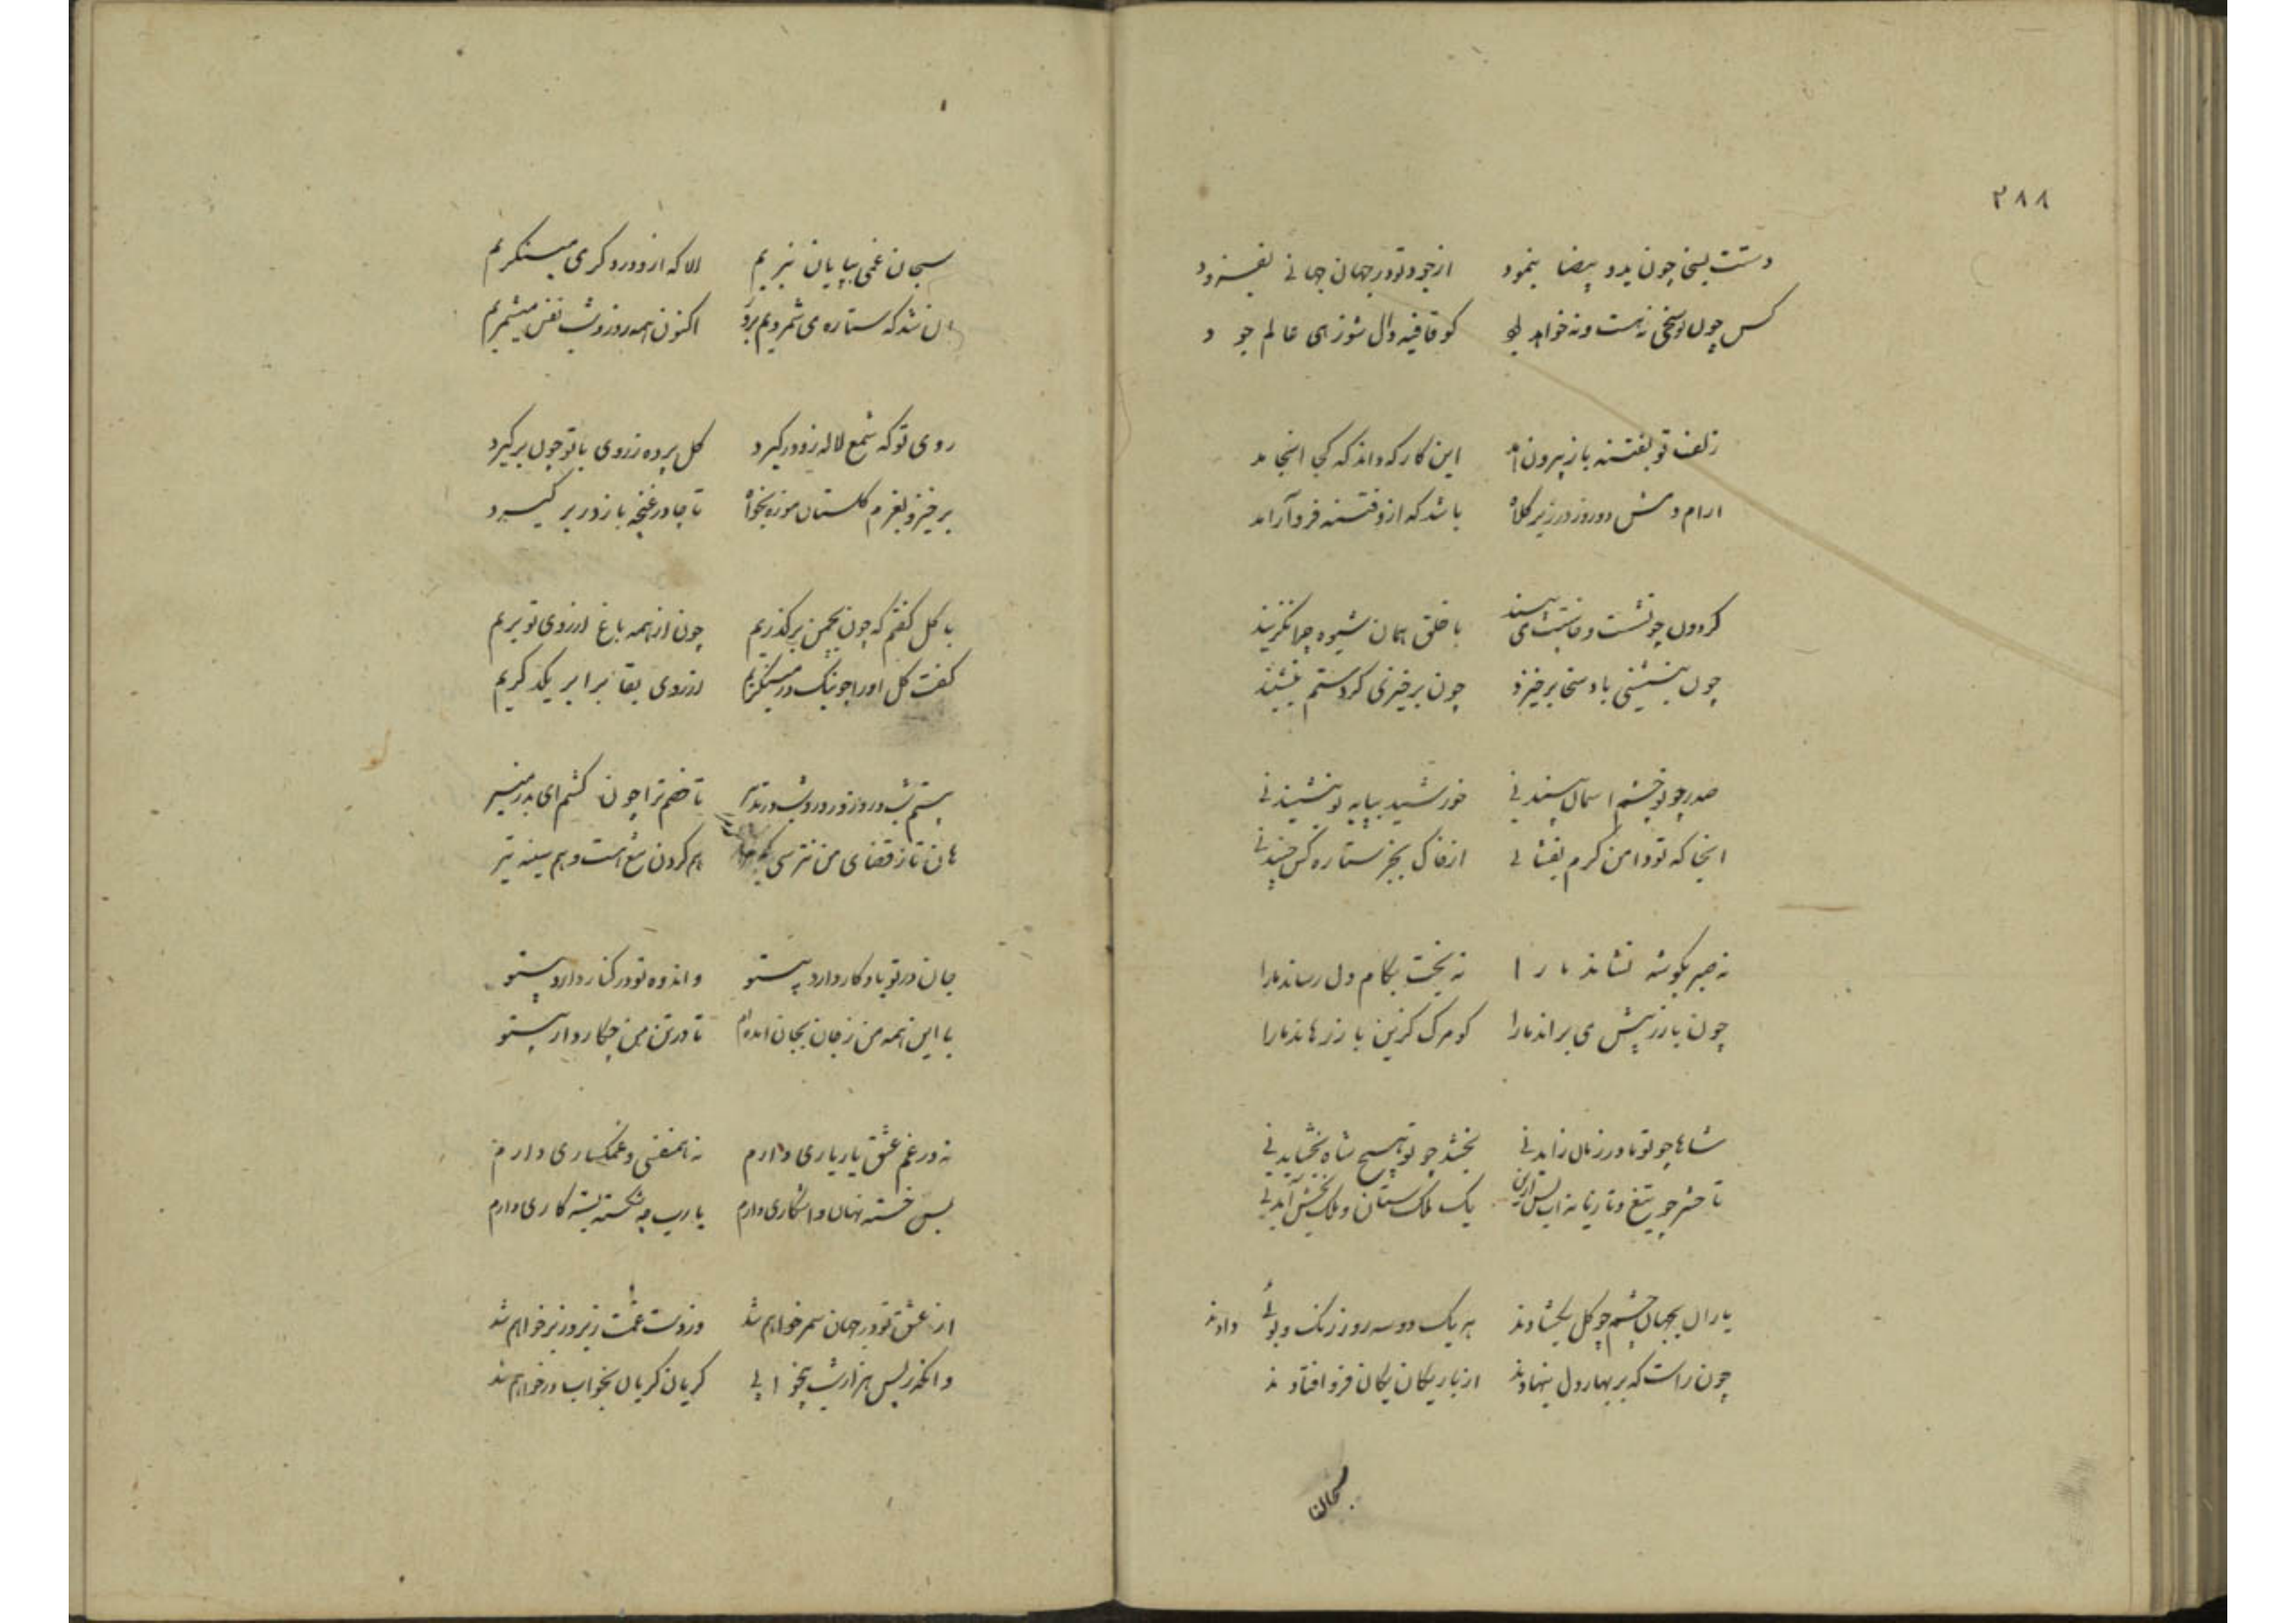 ۲۸۸
دستت بسخی چون ید و بیضا بنمود از جود تو در جهان جهانی بفزود
کس چون تو سخی نه هست و نه خواهد بود کو قافیه دال شو زهی عالم جود
زلف تو بفتنه باز بیرون آمد این کار که داند که کی انجامد
ارام دهش دو روز در زیر کلاه باشد که ازو فتنه فرو آرامد
کردون چو نشست و خاستت می بیند با خلق همان شیوه چرا نگزیند
چون بنشینی باد سخا برخیزد چون برخیزی کرد ستم بنشیند
صدر چو تو چشم اسمان بیند نی خورشید بپایه تو بنشیند نی
انجا که تو دامن کرم بفشانی از خاک بجز ستاره کس چیند نی
نه صبر بکوشه نشاند ما را نه بخت بکام دل رساند ما را
چون یار ز پیش می براند ما را کو مرک کزین باز رهاند ما را
شاها چو تو مادر زمان زاید نی بخشد چو تو هیچ شاه بخشاید نی
تا حشر چو تیغ و تازیانه ات پس ازین یک ملک ستان و ملک بخش آید نی
یاران بجهان چشم چو کل بکشادند هر یک دو سه روز رنک و بوئی دادند
چون راست که بر بهار دل بنهادند از بار یکان یکان فرو افتادند
سبحان غمی بپایان نبریم الا که از دور دکری مینکریم
آن شد که ستاره می شمردیم بروز اکنون همه روز و شب نفس میشمریم
روی تو که شمع لاله زو در کیرد کل پرده ز روی با تو چون بر کیرد
برخیز و بعزم کلستان موزه بخواه تا چادر غنچه باز در بر کیرد
با کل کفتم که چون بچمن بر کذریم چون از همه باغ ارزوی تو بریم
کفت کل او را چو نیک در مینکریم از روی بقا برابر یکدکریم
بستم بتدبیر تا خصم ترا چون کشم ای بدر منیر
هان تا ز قضای من نترسی هم کردن شع است و هم سینه تیر
جان درد تو یادکار دارد بیتو و اندوه تو در کنار دارد بیتو
با این همه من ز جان بجان امده ام تا در تن من چکار دارد بیتو
نه در غم عشق یار یاری دارم نه همنفسی و غمکساری دارم
بس خسته نهان و اشکاری دارم یارب چه شکسته بسته کاری دارم
از عشق تو در جهان سمر خواهم شد وز دست غمت زیر و زبر خواهم شد
وانکه ز پس هزار شب بیخوابی کریان کریان بخواب در خواهم شد